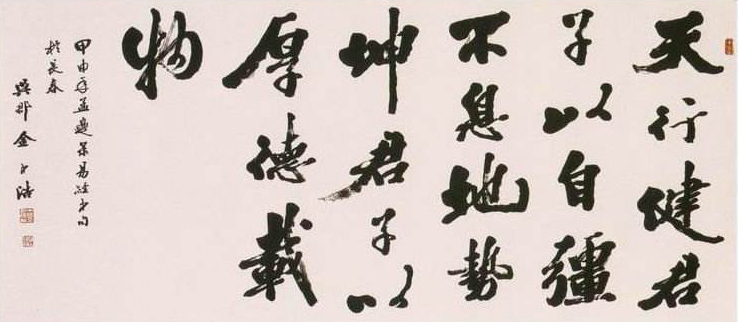 天行健君
子以自彊
不息地勢
坤君子以
厚德載
物
甲申年孟易經句
於長春
吳郡金